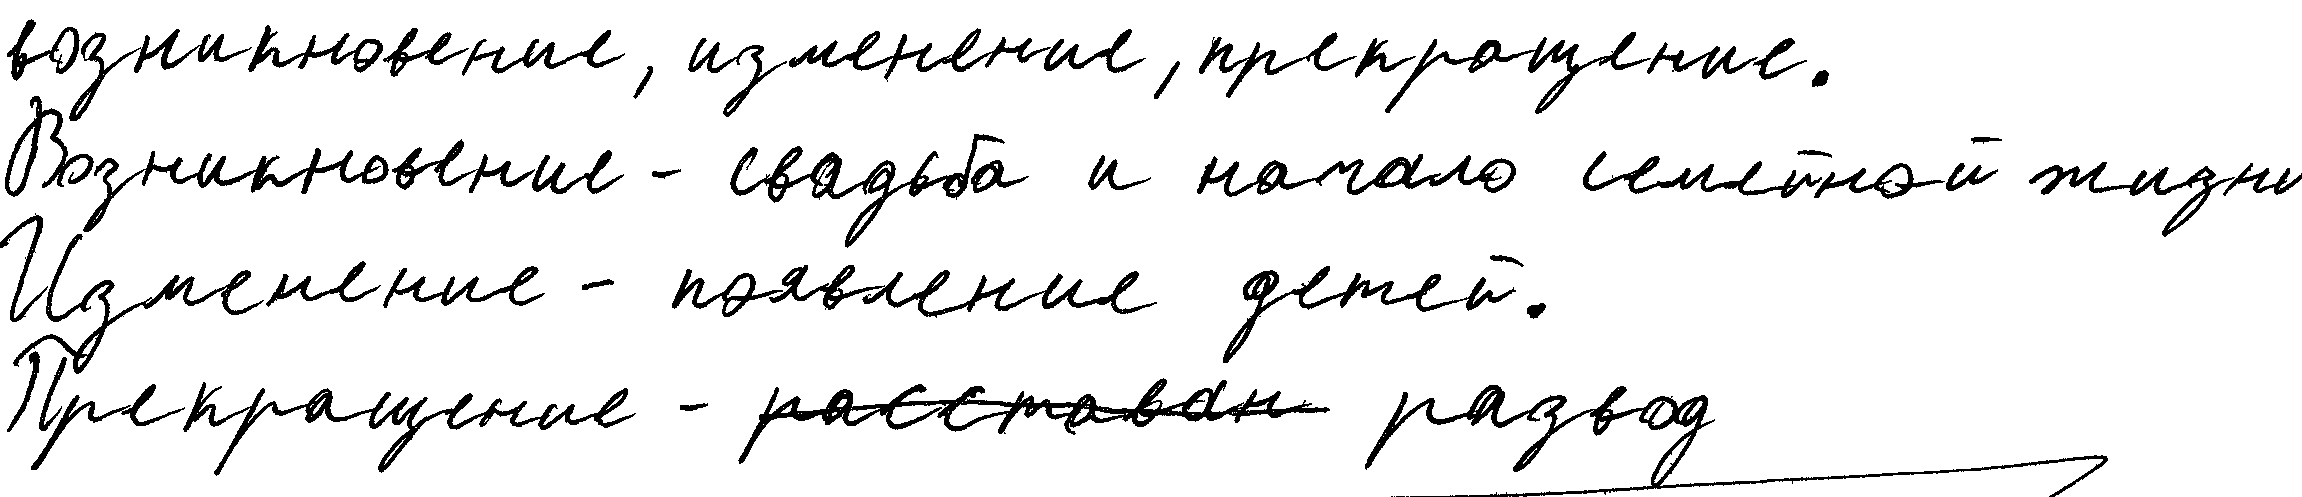 возникновение, изменение, прекращение.
Возникновение - свадьба и начало семейной жизни
Изменение - появление детей.
Прекращение - расставан развод